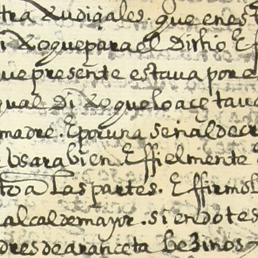 tra Xudiçales. que en est
i Xo que para el Dicho Eff
ue presente estava por e
qual Di Xo que lo açetava
madre. E por una señal de cr
Usara bien. E ffielmente
to a Las partes. E ffirmol
alcalde mayor. siendo tes
dres de aranceta bezinos